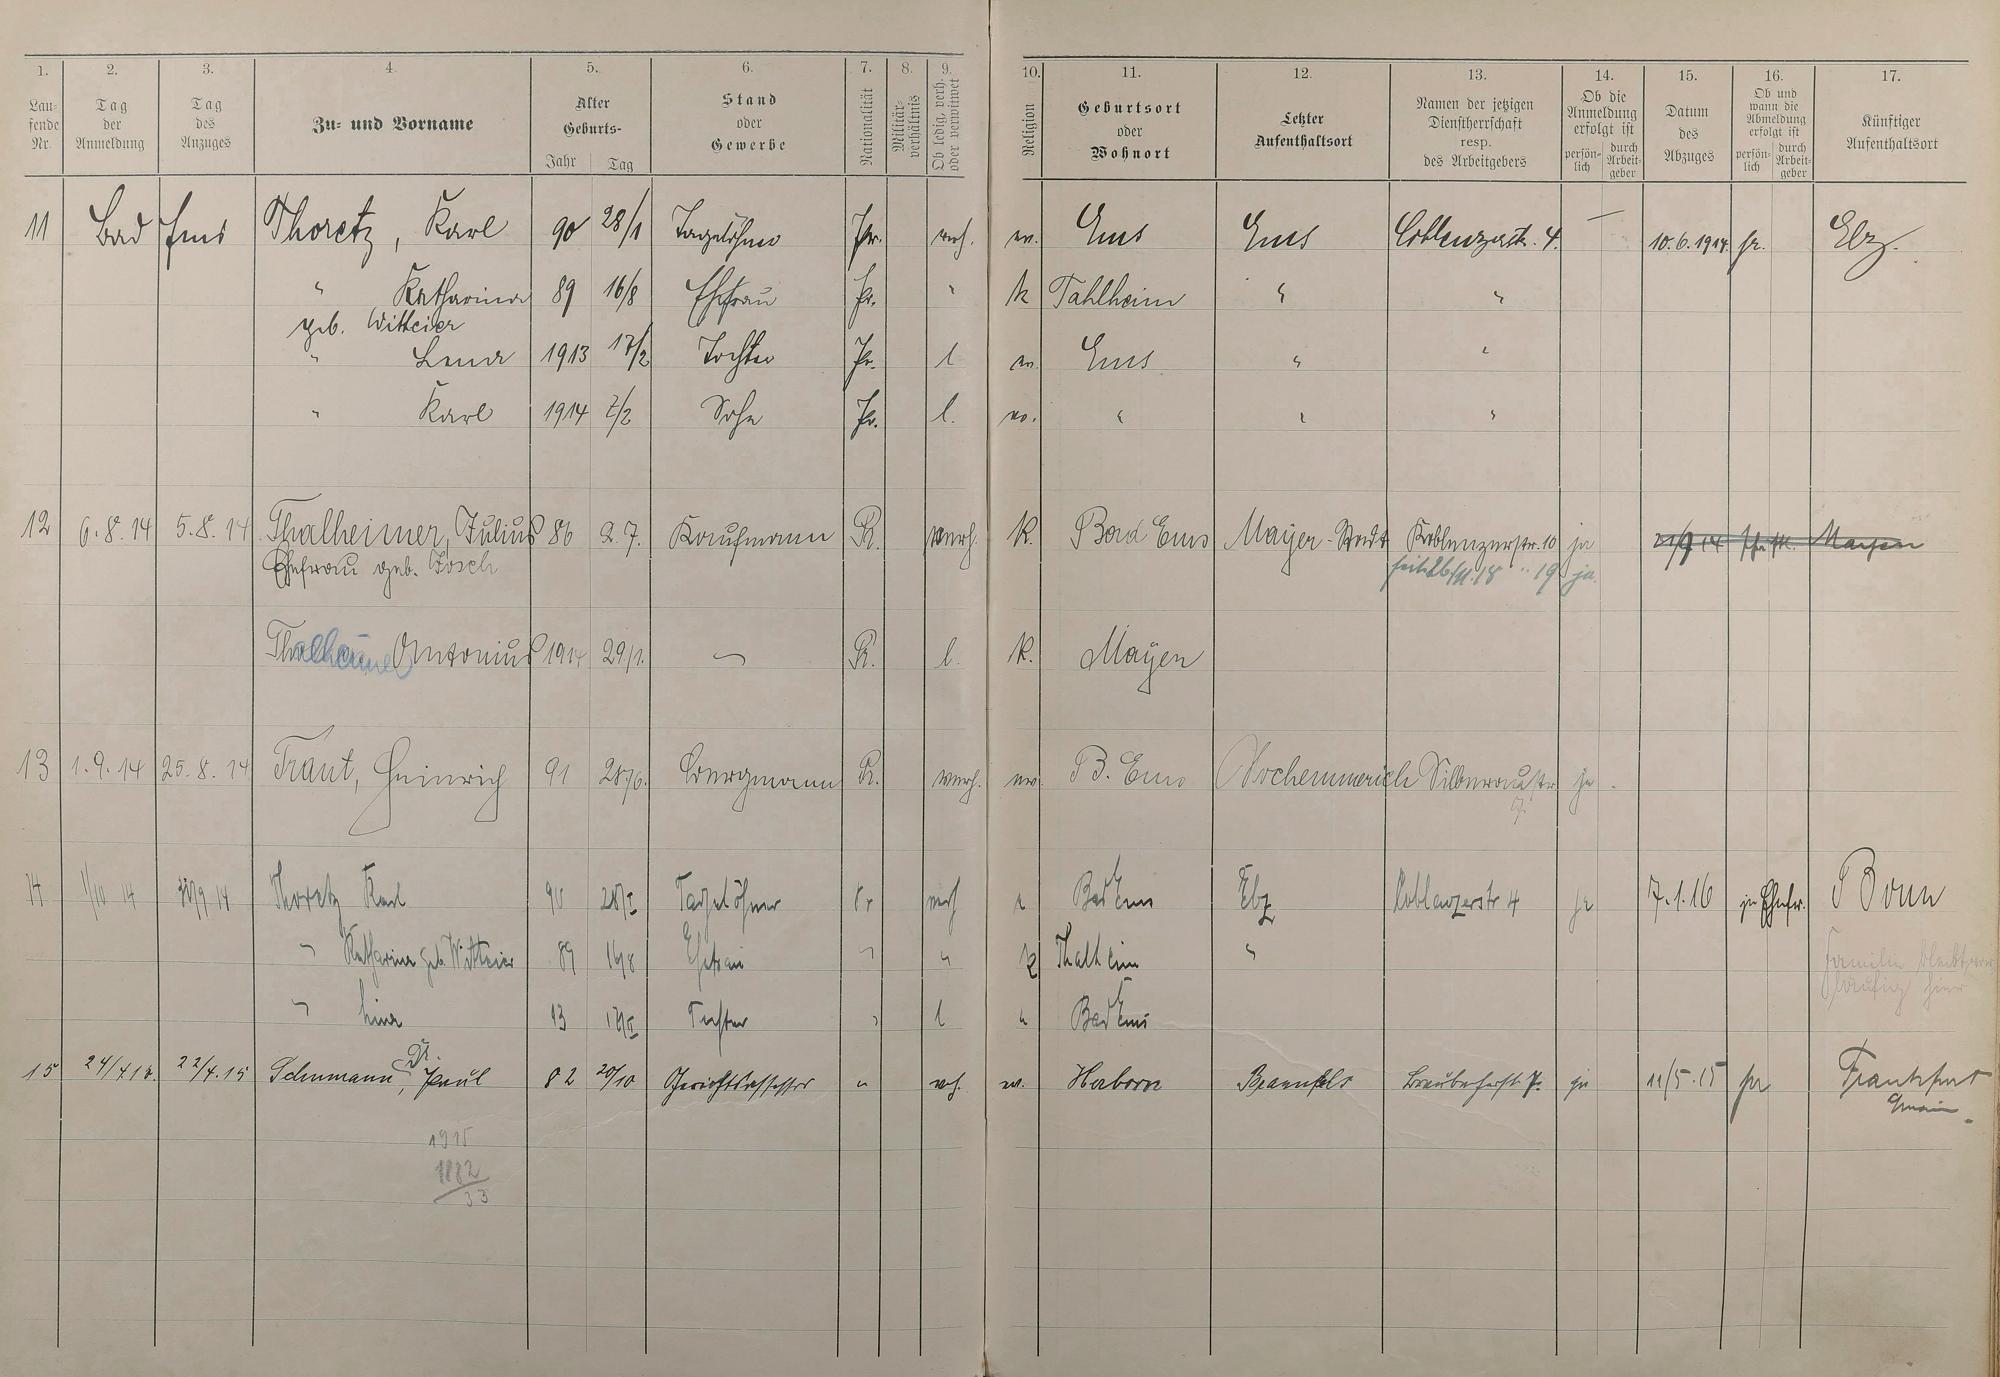 1. 2. 3. 4. 5. 6. 7. 8. 9. 10. 11. 12. 13. 14. 15. 16. 17.
Lau-
fende
Nr.
Tag
der
Anmeldung
Tag
des
Anzuges
Zu- und Vorname
Alter
Geburts-
Jahr Tag
Stand
oder
Gewerbe
Nationalität
Militär-
verhältnis
Ob ledig, verh.
oder verwitwet
Religion
Geburtsort
oder
Wohnort
Letzter
Aufenthaltsort
Namen der jetzigen
Dienstherrschaft
resp.
des Arbeitgebers
Ob die
Anmeldung
erfolgt ist
persön-
lich
durch
Arbeit-
geber
Datum
des
Abzuges
Ob und
wann die
Abmeldung
erfolgt ist
persön-
lich
durch
Arbeit-
geber
Künftiger
Aufenthaltsort
11 Bad Ems Thoretz, Karl 90 28/1 Tagelöhner Pr. verh. ev. Ems Ems Coblenzerstr. 4. 10.6.1914
" Katharina 89 16/8 Ehefrau Pr. " k Tahlheim " "
geb. Witteier
" Lena 1913 17/2 Tochter Pr. l ev. Ems " "
" Karl 1914 7/2 Sohn Pr. l. ev. " " "
12 6.8.14 5.8.14 Thalheimer, Julius 86 2.7. Kaufmann P. verh. K. Bad Ems Koblenzerstr. 10 ja 21/9 14 Mayen
Ehefrau geb. Josch seit 26/11.18 " 19 ja.
Thalheimer Antonius 1914 29/1. P. l. K. Mayen
13 1.9.14 25.8.14 Traut, Heinrich 91 28/6. Bergmann P. verh. ev. B. Ems Silberaustr. ja.
7.
14 1/10 14 Thoretz Karl 90 28/I Tagelöhner Pr verh e Bad Ems Coblenzerstr 4 ja 7.1.16 Bonn
" Katharina geb. Witteier 89 16/8 Ehefrau " " k Thalheim "
Familie bleibt vor-
läufig hier
" Lina 13 17/II Tochter " l e Bad Ems
15 22/4.15 Schumann, Dr. Paul 82 20/10 Gerichtsassessor " vh. ev. Herborn Braunfels ja 11/5.15 Frankfurt
Main
1915
1882
33